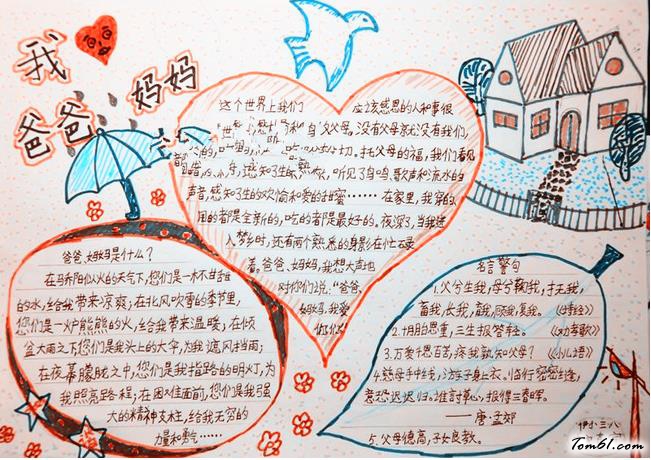 我爱
爸爸妈妈
这个世界上我们 应该感恩的人和事很
父母,没有父母就没有我们,
切。托父母的福,我们看见
感知了生的热, 听见了鸟鸣、歌声和流水的
声音,感知了生的欢愉和爱的甜蜜……在家里,我穿的、
用的都是全新的,吃的都是最好的。夜深了,当我进
入梦乡时,还有两个熟悉的身影在忙云录
着。爸爸、妈妈,我想大声地
对你们说:“爸爸、
妈妈,我爱
你们
爸爸、妈妈是什么?
在马乔阳似火的天气下,您们是一杯甘甜
的水,给我带来凉爽;在北风吹雪的季节里,
您们是一炉熊熊的火,给我带来温暖;在倾
盆大雨之下,您们是我头上的大伞,为我遮风挡雨;
在夜幕朦胧之中,您们是我指路的明灯,为
我照亮路程;在困难面前,您们是我强
大的精神支柱,给我无穷的
力量和勇气……
名言警句
1.父兮生我,母兮鞠我,抚我,
畜我,长我,育我,顾我,复我。
2.十月胎恩重,三生报答轻。《劝孝歌》
3.万爱千恩百苦,疼我孰知父母?《小儿语》
4.慈母手中线,游子身上衣。临行密密缝,
意恐迟迟归。谁言寸草心,报得三春晖。
——唐·孟郊
5.父母德高,子女良教。
Tom61.com